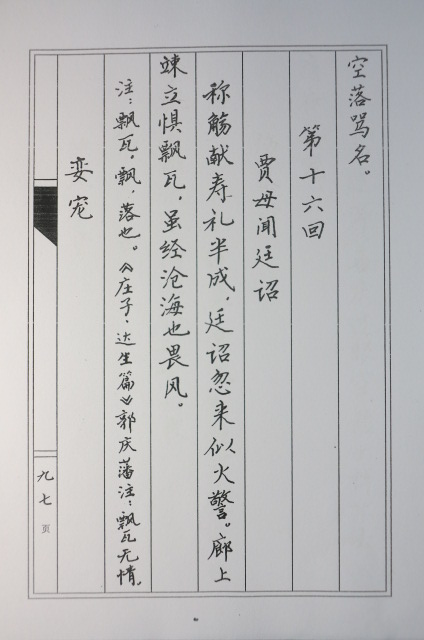 空落骂名。
第十六回
贾母闻廷诏
称觞献寿礼半成，廷诏忽来似火警。廊上
竦立惧飘瓦，虽经沧海也畏风。
注：飘瓦，飘，落也。《庄子·达生篇》郭庆藩注：飘瓦无情。
娈宠
九七页